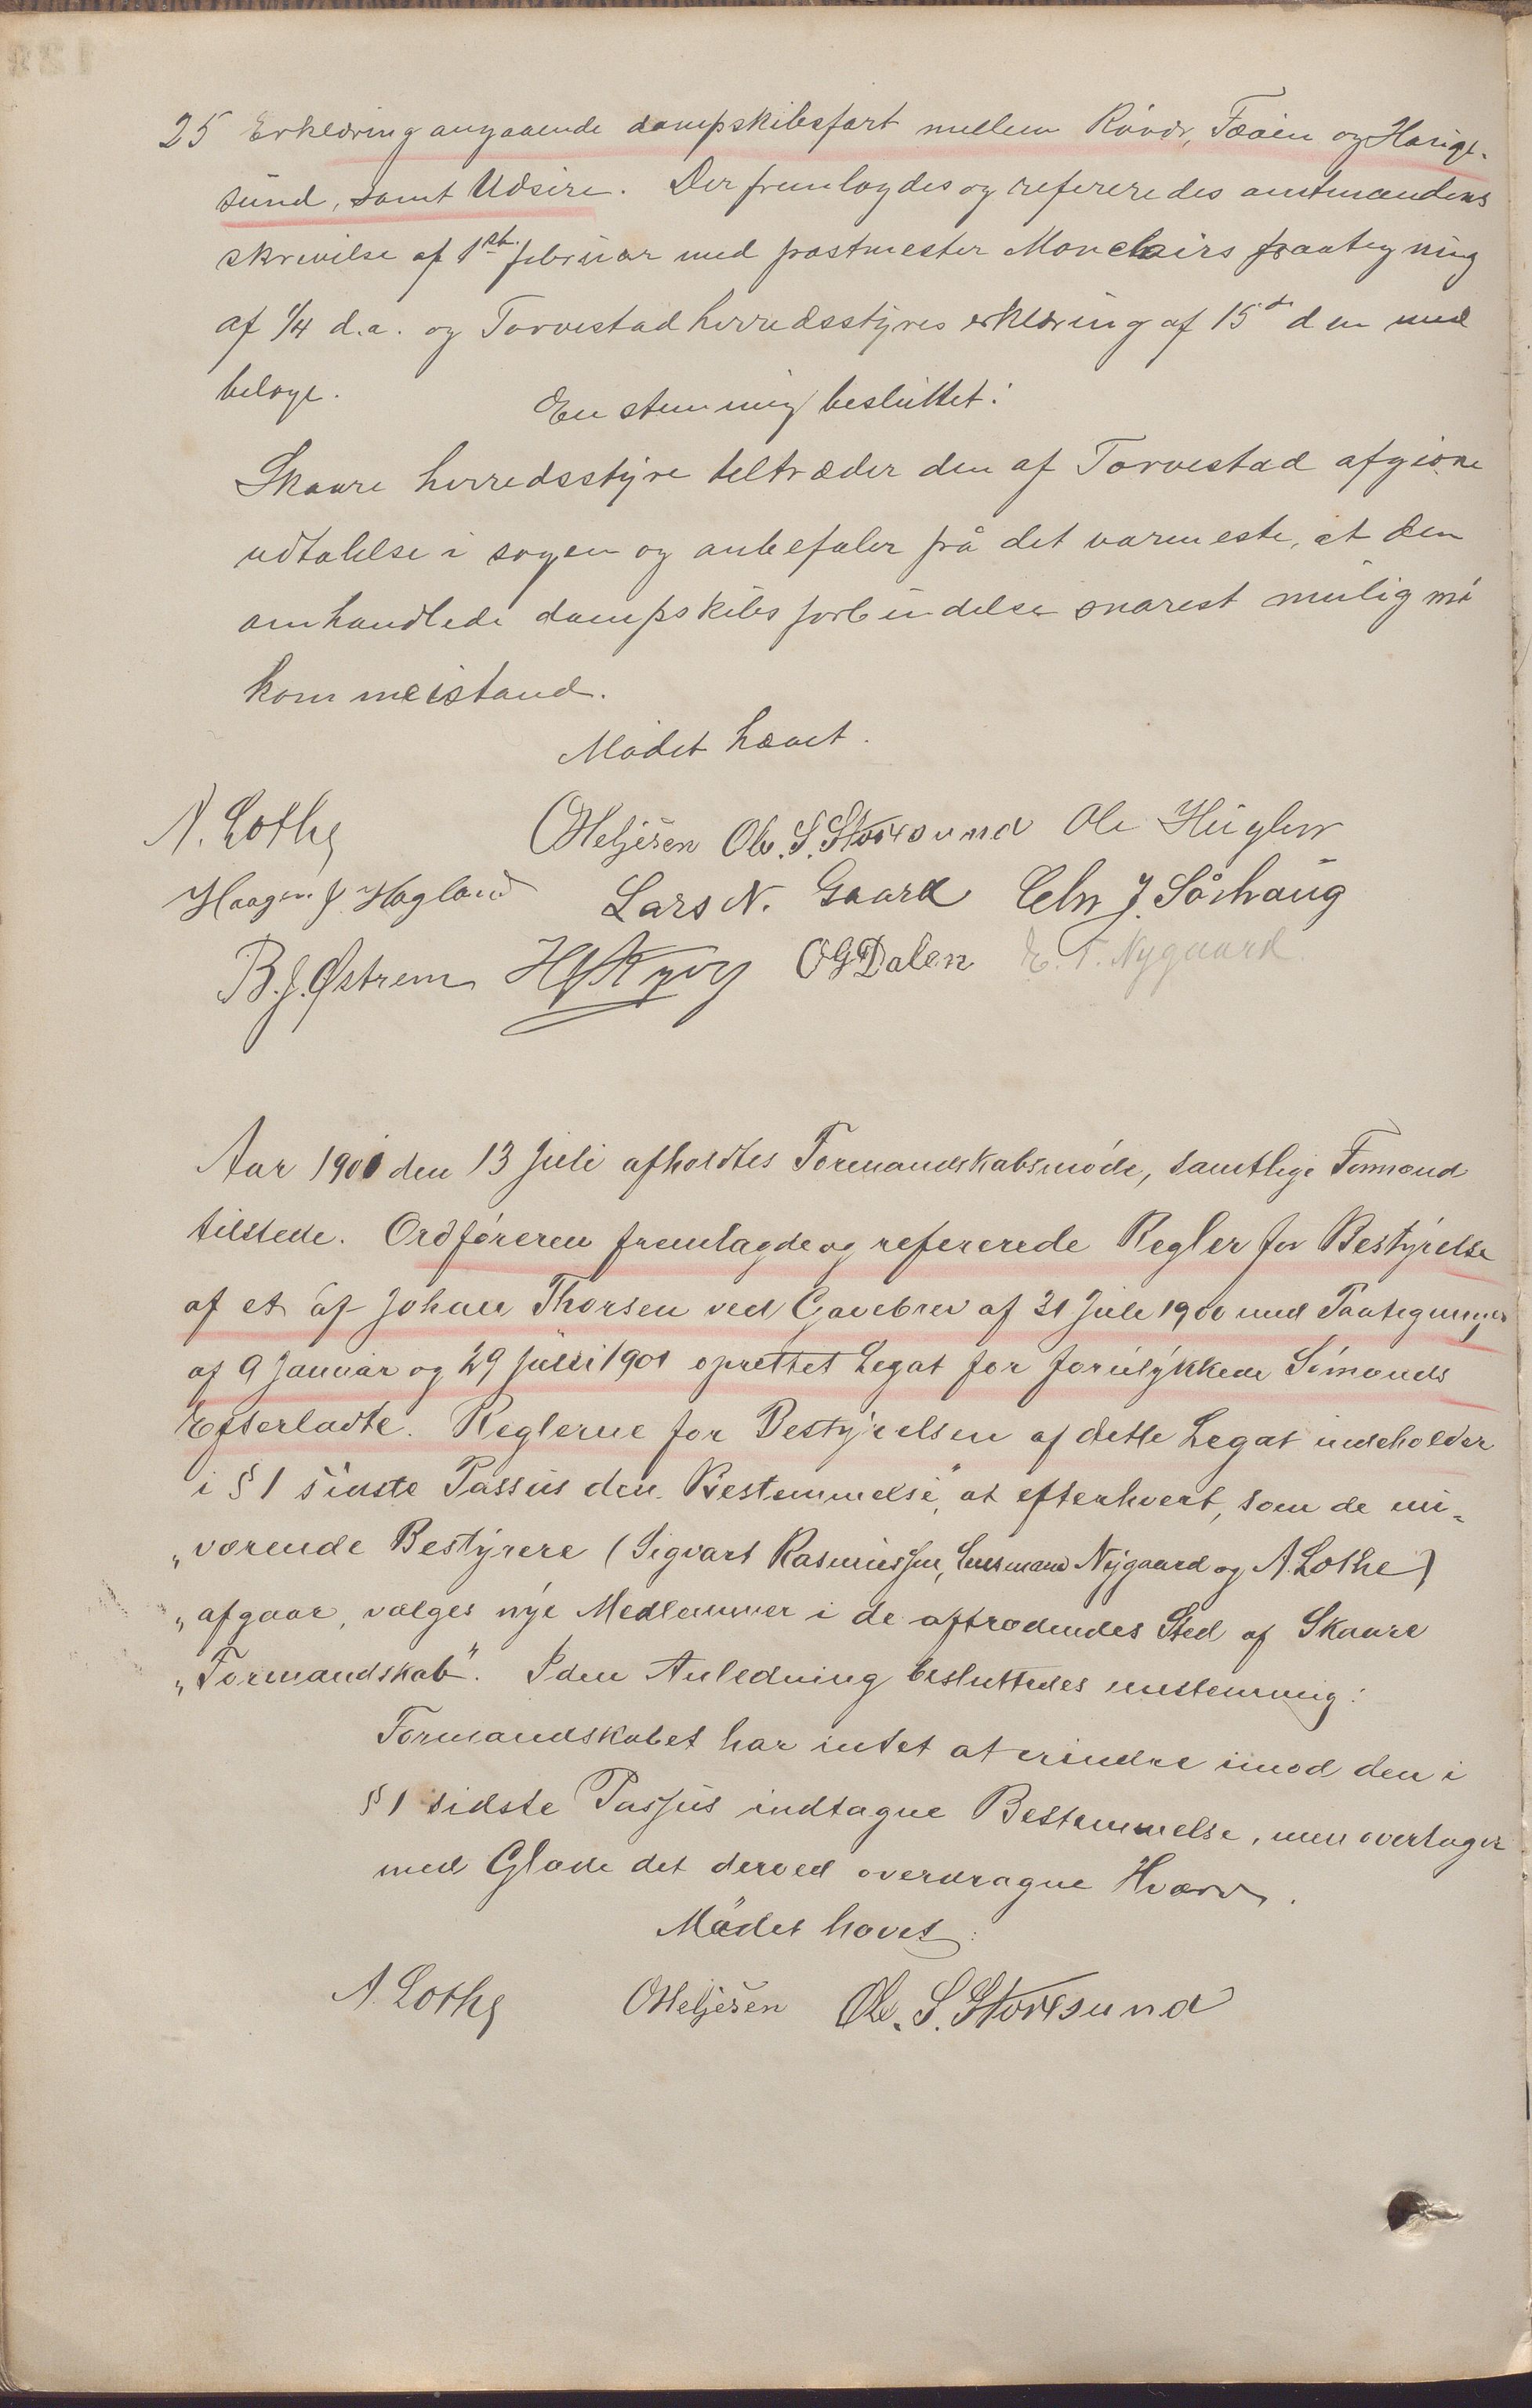 25 Erklæring angaaende dampskibsfart mellem Røvær, Feøen og Hauge-
sund, samt Udsire. Der fremlagdes og refereredes amtmandens
skrivelse af 1ste februar med postmester Monclairs paategning
af 1/4 d.a. og Torvestad herredsstyres erklæring af 15de ds. med
belage.
Enstemmig besluttet:
Skaare herredsstyre teltræder den af Torvestad afgivne
udtalelse i sagen og anbefaler på det varmeste, at den
omhandlede dampskibsforbindelse snarest mulig må
komme istand.
Mødet hævet.
A. Lothe OHeljesen Ole. S. Storesund Ole Huglen
Haagen J. Hagland Lars N. Gaard Cehr J. Sørhaug
B. J. Østrem OGDalen E. T. Nygaard.
Aar 1901 den 13 Juli afholdtes Formandskabsmøde, samtlige Formænd
tilstede. Ordføreren fremlagde og refererede Regler for Bestyrelse
af et af Johan Thorsen ved Gavebrev af 31 Juli 1900 med Paategninger
af 9 Januar og 29 Juni 1901 oprettet Legat for forulykkede Sømænds
Efterladte. Reglerne for Bestyrelsen af dette Legat indeholder
i § 1 sidste Passus den Bestemmelse, "at efterhvert, som de nu-
"værende Bestyrere (Sigvart Rasmussen, Lensmand Nygaard og A. Lothe)
"afgaar, vælges nye Medlemmer i de aftrædendes Sted af Skaare
"Formandskab". I den Anledning besluttedes enstemmig:
Formandskabet har intet at erindre imod den i
§ 1 sidste Passus indtagne Bestemmelse, men overtager
med Glæde det derved overdragne Hværv.
Mødet hævet.
A. Lothe OHeljesen Ole. S. Storesund